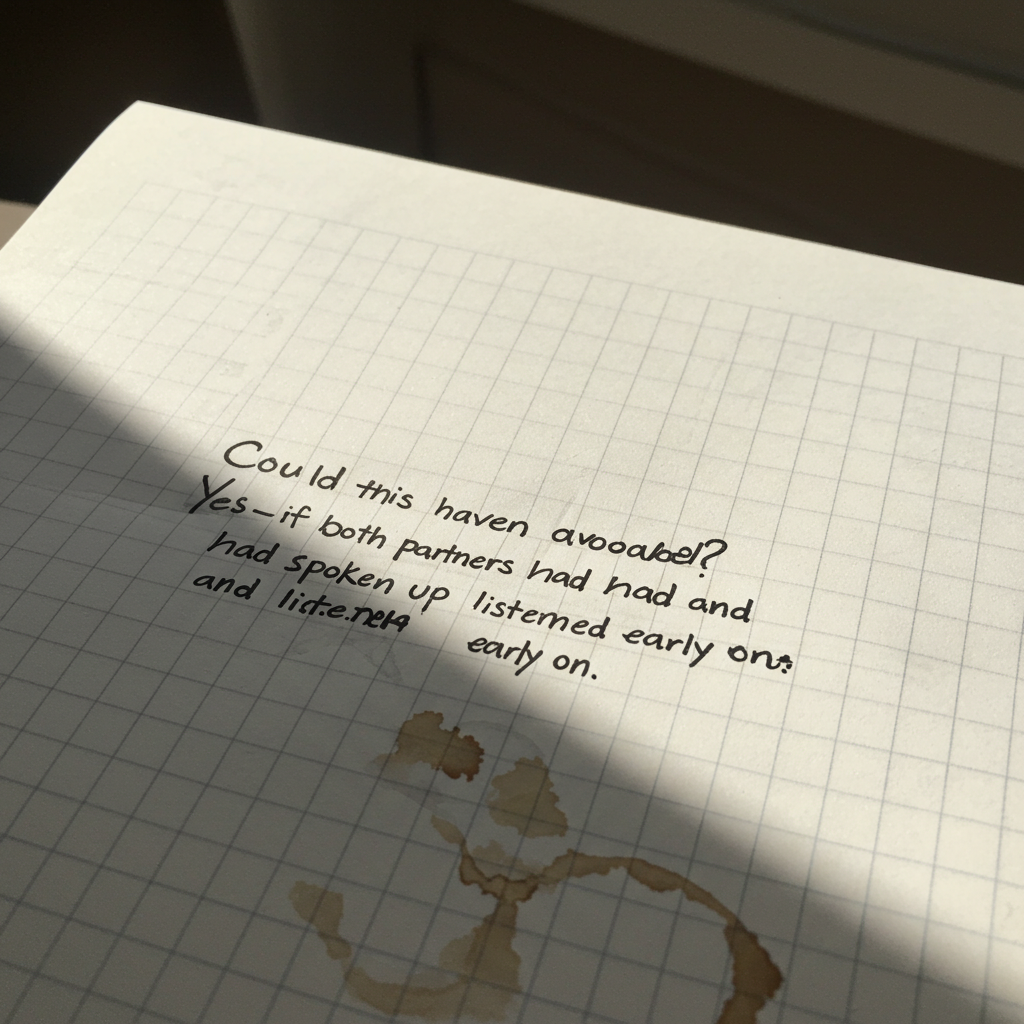 Could this haven
Yes–if both partners had had and
had spoken up listemed early on
and early on.